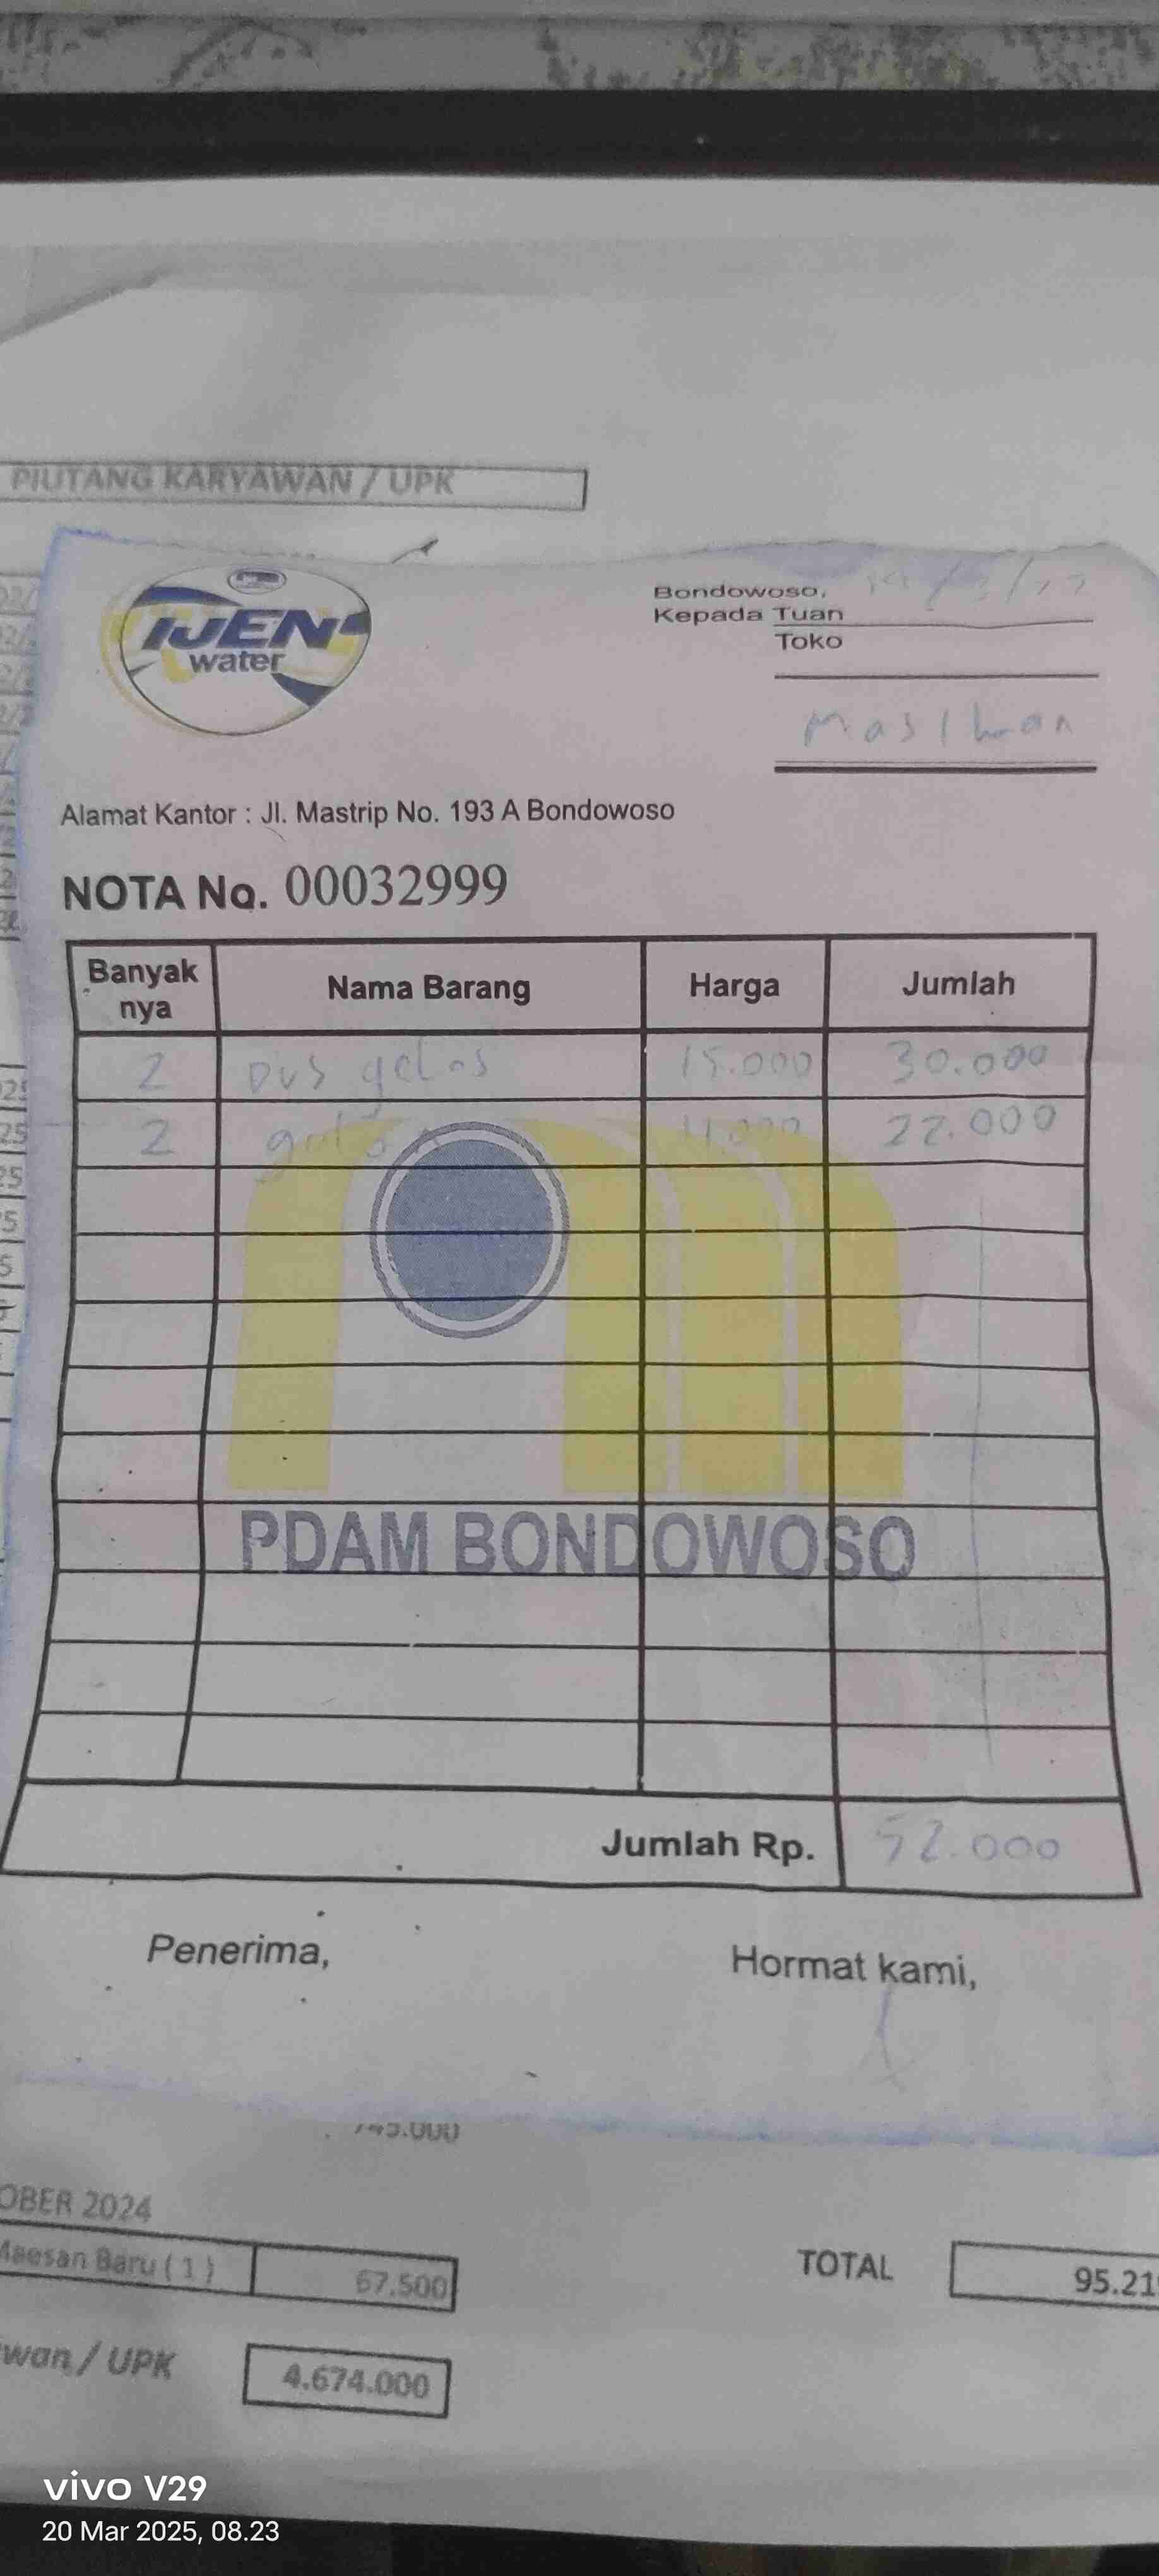 PIUTANG KARYAWAN / UPK
IJEN
water
Bondowoso,
Kepada Tuan
Toko
Masihan
Alamat Kantor : Jl. Mastrip No. 193 A Bondowoso
NOTA No. 00032999
Banyak nya Nama Barang Harga Jumlah
2 Dus gelas 15.000 30.000
2 galon 11.000 22.000
PDAM BONDOWOSO
Jumlah Rp. 52.000
Penerima, Hormat kami,
745.000
OBER 2024
Maesan Baru ( 1 ) 67.500 TOTAL 95.21
wan / UPK 4.674.000
vivo V29
20 Mar 2025, 08.23